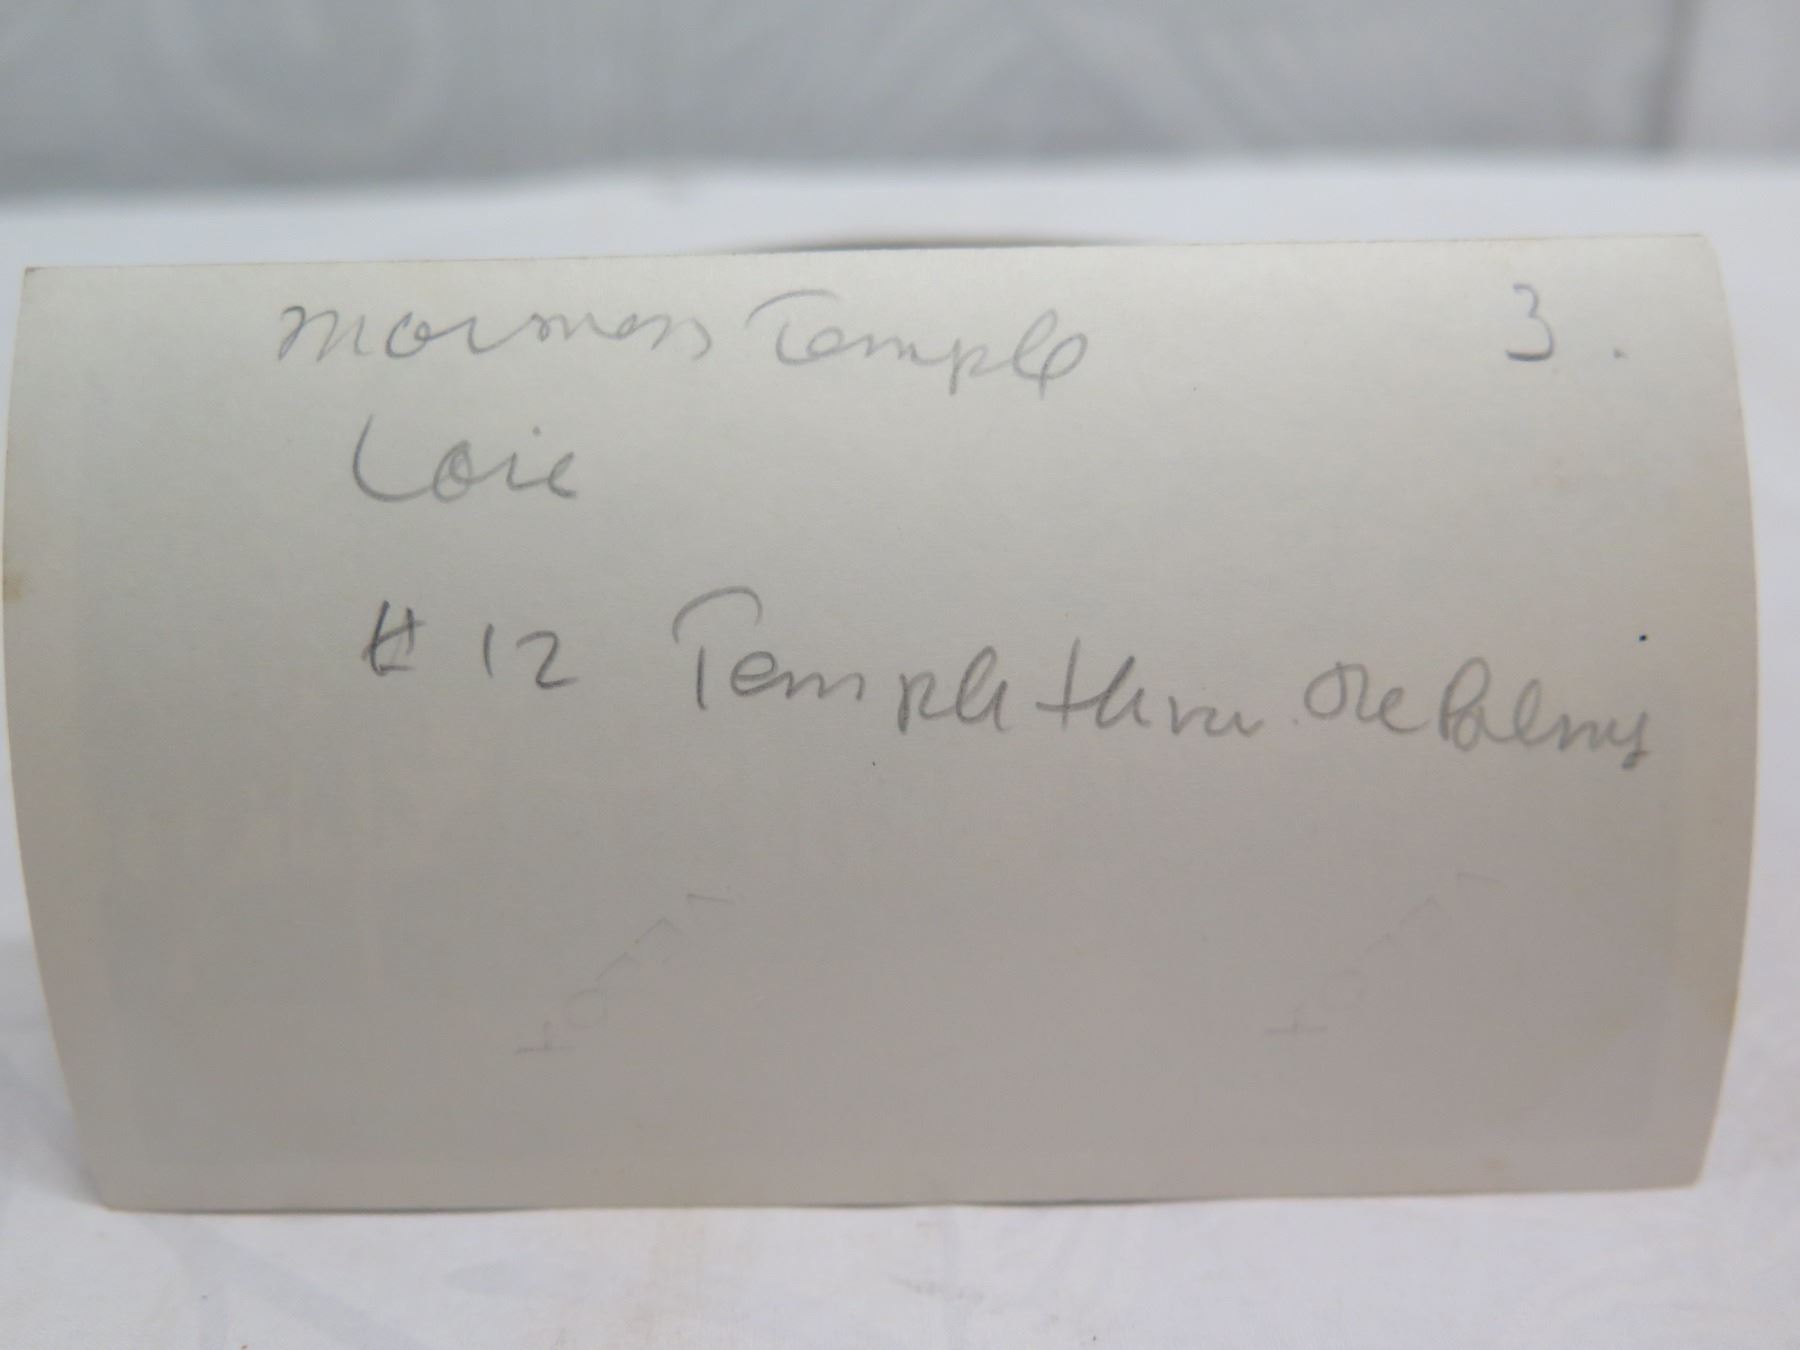 Mormon Temple 3.
Loie
# 12 Temple thru the Palms